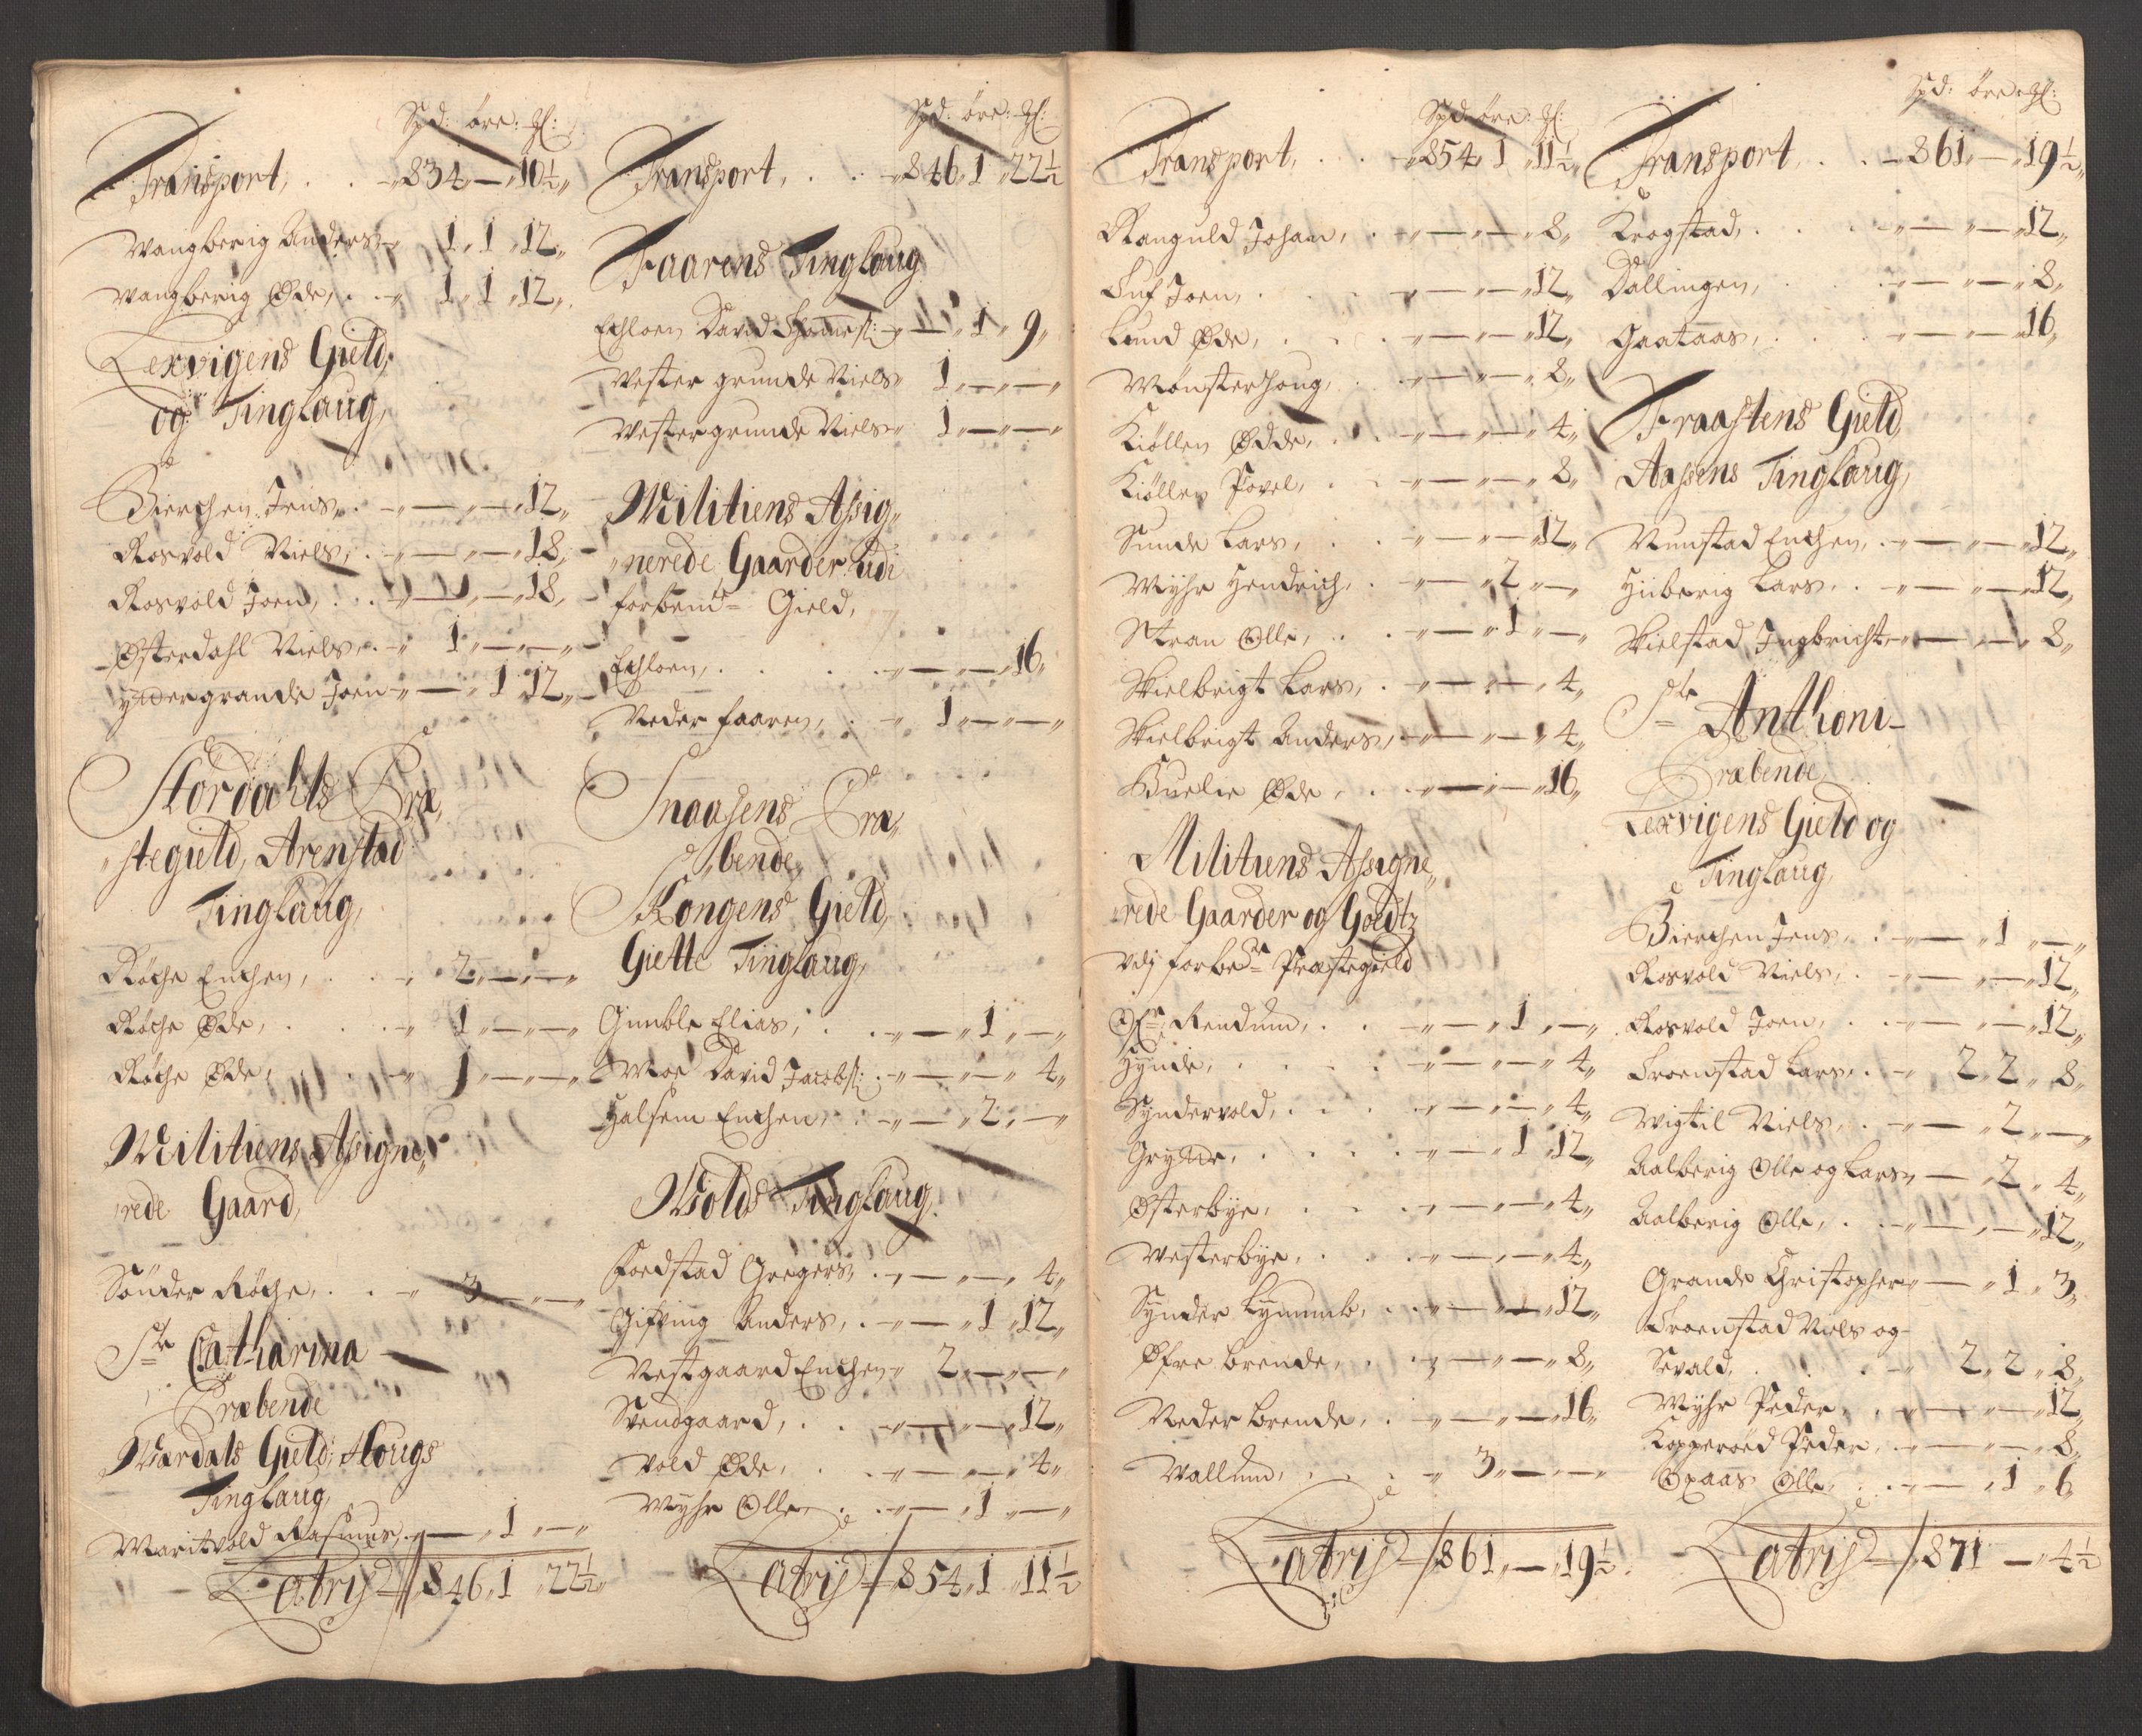 Spd: öre: ₰:
Transport, . . „ 834 „ — „ 10½ „
Wangberig Anders „ 1 „ 1 „ 12 „
Wangberig Øde, . . „ 1 „ 1 „ 12 „
Lexvigens Gield,
og Tinglaug,
Bierchen Jens, . „ — „ — „ 12 „
Rosvold Niels, . „ — „ — „ 18 „
Rosvold Joen, . . „ — „ — „ 18 „
Østerdahl Niels, . „ 1 „ — „ — „
Ydergrande Joen „ — „ 1 „ 12 „
Stordahls Præ„
„stegield, Arenstad
Tinglaug,
Røche Enchen, . . „ 2 „ — „ — „
Røche Øde, . . . „ 1 „ — „ — „
Røche Øde, . . . „ 1 „ — „ — „
Militiens Assigne„
„rede Gaard,
Sönder Röche, . . „ 3 „ — „ — „
Ste Catharina
Præbende
Wærdals Gield, Hougs
Tinglaug,
Maritvold Rasmus, . „ — „ 1 „ — „
Latris 846 „ 1 „ 22½ „
Spd: öre: ₰:
Transport, . . „ 846 „ 1 „ 22½
Faarens Tinglaug
Echloen David „ — „ 1 „ 9 „
Vester grunde Niels „ 1 „ — „ — „
Vestergrunde Niels „ 1 „ — „ — „
Militiens Assig„
„nerede Gaarder udi
forbemte Gield,
Echloen, . . . „ — „ — „ 16 „
Neder faaren, . . „ 1 „ — „ — „
Snaasens Præ„
„bende,
Kongens Gield,
Giette Tinglaug,
Gimble Elias, . . „ — „ 1 „ — „
Moe David Jacobs: . „ — „ — „ 4 „
Halsem Enchen, . „ — „ 2 „ — „
Wolds Tinglaug,
Foedstad Gregers, . „ — „ — „ 4 „
Gifsing Anders, . „ — „ 1 „ 12 „
Vestgaard Enchen „ 2 „ — „ — „
Svendgaard, . . „ — „ — „ 12 „
Vold Øde, . . „ — „ — „ 4 „
Myhr Olle, . . „ — „ 1 „ — „
Latris 854 „ 1 „ 11½
Spd: öre: ₰:
Transport, . . „ 854 „ 1 „ 11½ „
Ranguld Johan, . „ — „ — „ 8 „
Joen, . . . „ — „ — „ 12 „
Lund Øde, . . . „ — „ — „ 12 „
Mönsterhoug, . „ — „ — „ 8 „
Kiöllen Ødde, . . „ — „ — „ 4 „
Kiöllen Povel, . . „ — „ — „ 8 „
Sunde Lars, . . „ — „ — „ 12 „
Myhr Hendrich, . „ — „ 2 „ — „
Stran Olle, . . „ — „ 1 „ — „
Skielbrigt Lars, . „ — „ — „ 4 „
Skielbrigt Anders, „ — „ — „ 4 „
Øde, . . „ — „ — „ 16 „
Militiens Assigne„
„rede Gaarder og Goedtz
Vdj forbede Præstegield
Rendum, . . „ — „ 1 „ — „
Hynde, . . . . „ — „ — „ 4 „
Syndervold, . . . „ — „ — „ 4 „
Grytte, . . . . „ — „ 1 „ 12 „
Østerbye, . . . „ — „ — „ 4 „
Westerbye, . . . „ — „ — „ 4 „
Synder . . „ — „ — „ 12 „
Øfre Brende, . . „ — „ — „ 8 „
Neder Brende, . . „ — „ — „ 16 „
Wallum, . . . „ 3 „ — „ — „
Latris 861 „ — „ 19½ „
Spd: öre: ₰:
Transport, . . „ 861 „ — „ 19½ „
Krogstad, . . . „ — „ — „ 12 „
Dallingen, . . . „ — „ — „ 8 „
Haataas, . . . „ — „ — „ 16 „
Fraastens Gield,
Aasens Tinglaug,
Nunstad Enchen, . „ — „ — „ 12 „
Hiiberig Lars, . „ — „ — „ 12 „
Skielstad Ingbricht „ — „ — „ 8 „
Ste Anthoni
Præbende,
Lexvigens Gield og
Tinglaug,
Bierchen Jens, . „ — „ 1 „ — „
Rosvold Niels, . „ — „ — „ 12 „
Rosvold Joen, . . „ — „ — „ 12 „
Troenstad Lars, . „ 2 „ 2 „ 8 „
Wigtil Niels, . „ — „ 2 „ — „
Aalberig Olle og Lars „ — „ 2 „ 4 „
Aalberig Olle, . „ — „ — „ 12 „
Grande Christopher „ — „ 1 „ 3 „
Troenstad Niels og
Sevald, . . . „ 2 „ 2 „ 8 „
Myhr Peder, . . „ — „ — „ 12 „
Koppervoed Peder, . „ — „ — „ 8 „
Opaas Olle, . . „ — „ 1 „ 6 „
Latris 871 „ — „ 4½